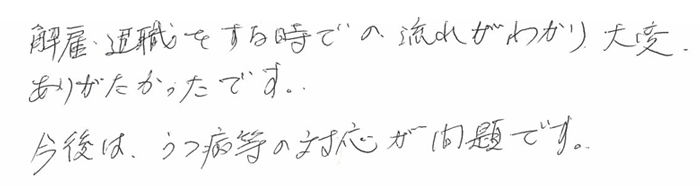 解雇・退職をする時での流れがわかり、大変、
ありがたかったです。
今後は、うつ病等の対応が問題です。